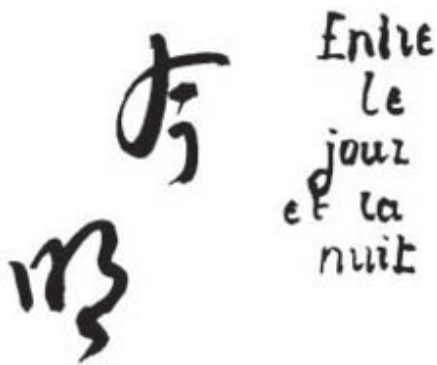 有
明
Entre
le
jour
et la
nuit